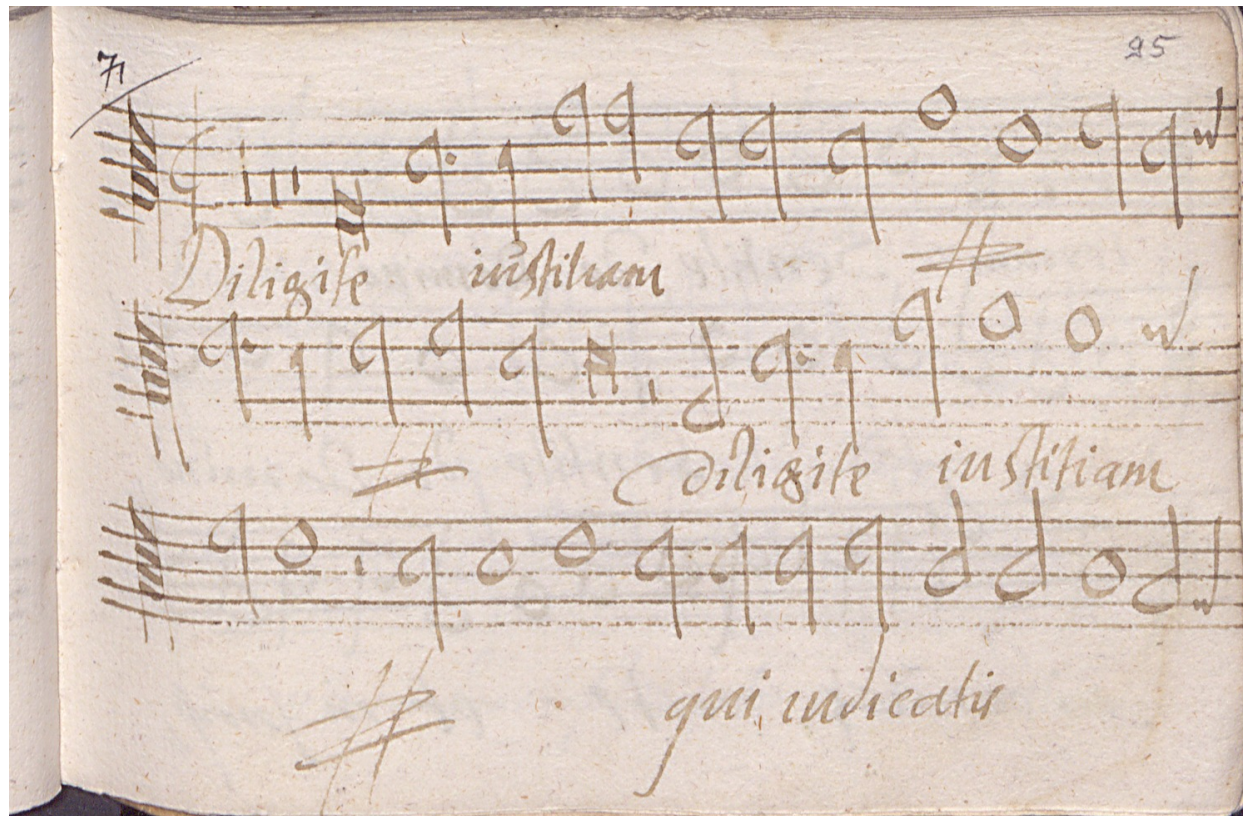 71
25
Diligite iustitiam
Diligite iustitiam
qui iudicatis